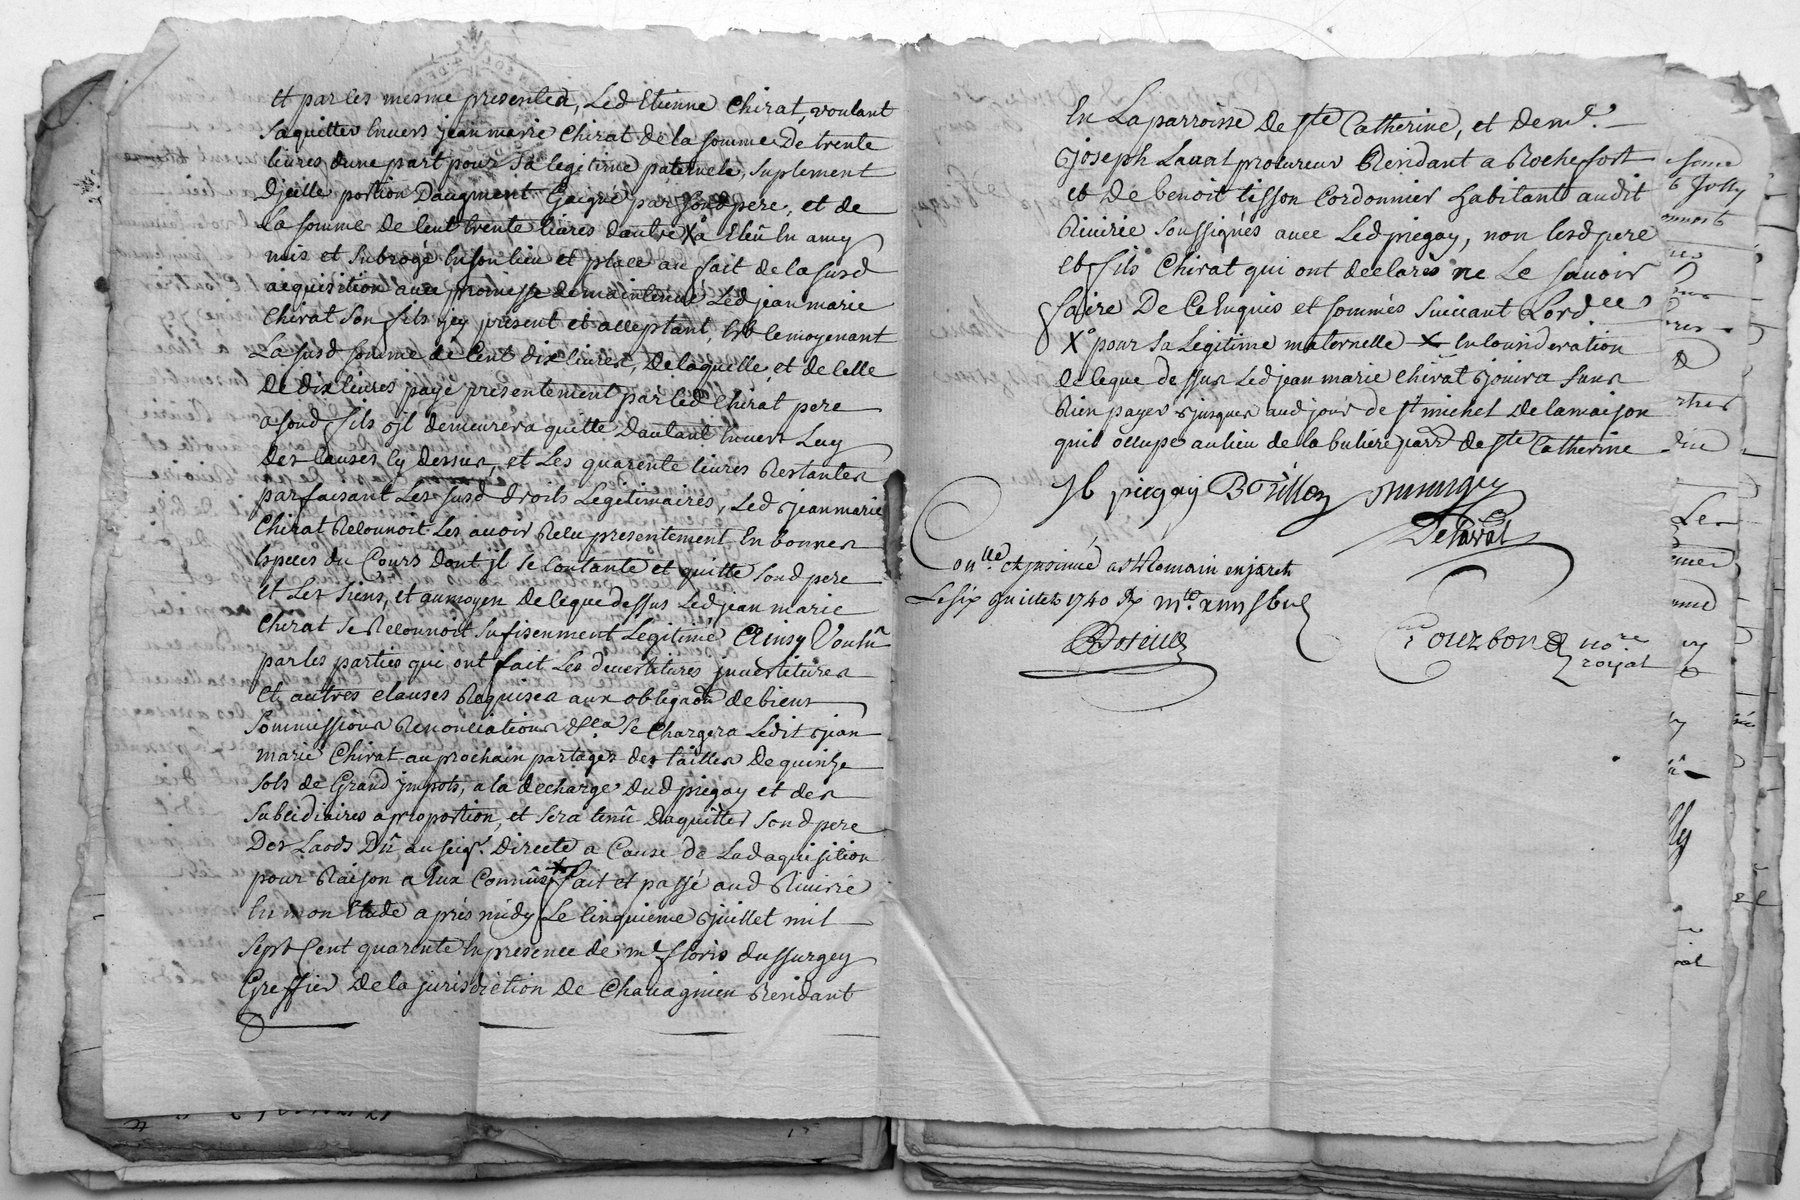 Et par les mesme presentes, Led Etienne Chirat, voulant
saquitter Envers jean marie Chirat de la somme de trente
livres dune part pour sa legitime paternele, suplement
Djcelle portion Daugment Gaigné par sond pere, et de
La somme de Cent trente livres dautre X a Eleû En amy
mis et subrogé En son lieu et place au fait de la susd
acquisition avec promesse de maintenue Led jean marie
Chirat son fils jcy present et acceptant, Et ce moyenant
La susd somme de Cent dix livres, De laquelle et de Celle
De dix livres payé presentement par led Chirat pere
a sond fils jl demeurera quitte Dautant Envers Luy
Des Causes Cy dessus, et Les quarente livres Restantes
parfaisant Les susd droits Legitimaires, Led jean marie
Chirat Reconnoit Les avoir Receu presentement En bonnes
Especes du Cours dont jl se Contante et quitte sond pere
et Les siens, et au moyen De ceque dessus Led jean marie
Chirat se Reconnoit sufisenment Legitimé Ainsy Voulu
par les parties qui ont fait Les devestitures jnvestitures
et autres clauses Requises aux obligaôn de biens
sommissions Renonciations &.ca se Chargera Ledit jean
marie Chirat au prochain partage des tailles De quinze
sols de Grand jmpots, a la decharge dud piegay et des
subcidiaires aproportion, et sera tenû Daquitter sond pere
Des Laods Dû au seigr. Directe a Cause de Lad aquisition
pour Raison a Eux Connûe X fait et passé aud Rivirié
En mon Etude aprés midy Le Cinquieme juillet mil
sept Cent quarente En presence de mr floris dussurgey
Greffier de la jurisdiction De Chavagnieu Residant
En La parroisse De ste Catherine, et De mr.
joseph Laval procureur Residant a Rochefort
et De benoit tisson Cordonnier habitant audit
Rivirié soussignés avec Led piegay, non lesd pere
et fils Chirat qui ont declarés ne Le savoir
faire De Ce Enquis et sommés suivant Lordce
X pour sa Legitime maternelle X En Consideration
de ceque dessus Led jean marie Chirat jouira sans
Rien payer jusques aud jour de st michel De la maison
quil occupe au lieu de la buliere parr de ste Catherine
piegay
Delaval
Conlle et jnsinué a st Romain en jarets
Le six juillet 1740
Bourbon no.re
royal